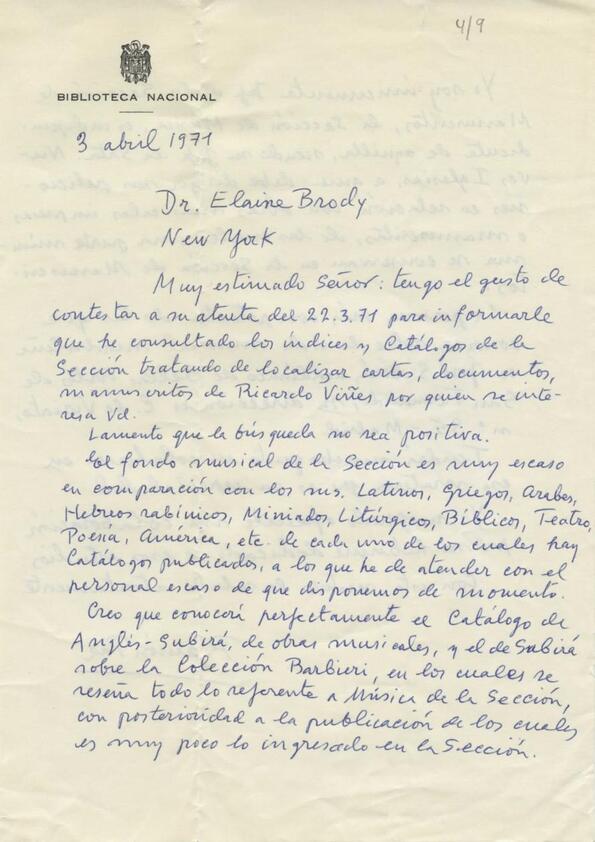 4/9
BIBLIOTECA NACIONAL
3 abril 1971
Dr. Elaine Brody
New York
Muy estimado Señor: tengo el gusto de
contestar a su atenta del 22.3.71 para informarle
que he consultado los índices y Catálogos de la
Sección tratando de localizar cartas, documentos,
manuscritos de Ricardo Viñes por quien se inte-
resa Vd.
Lamento que la búsqueda no sea positiva.
El fondo musical de la Sección es muy escaso
en comparación con los ms. Latinos, Griegos, Arabes,
Hebreos rabínicos, Miniados, Litúrgicos, Bíblicos, Teatro,
Poesía, América, etc. de cada uno de los cuales hay
Catálogos publicados, a los que he de atender con el
personal escaso de que disponemos de momento.
Creo que conocerá perfectamente el Catálogo de
Anglés-Subirá, de obras musicales, y el de Subirá
sobre la Colección Barbieri, en los cuales se
reseña todo lo referente a Música de la Sección,
con posterioridad a la publicación de los cuales
es muy poco lo ingresado en la Sección.